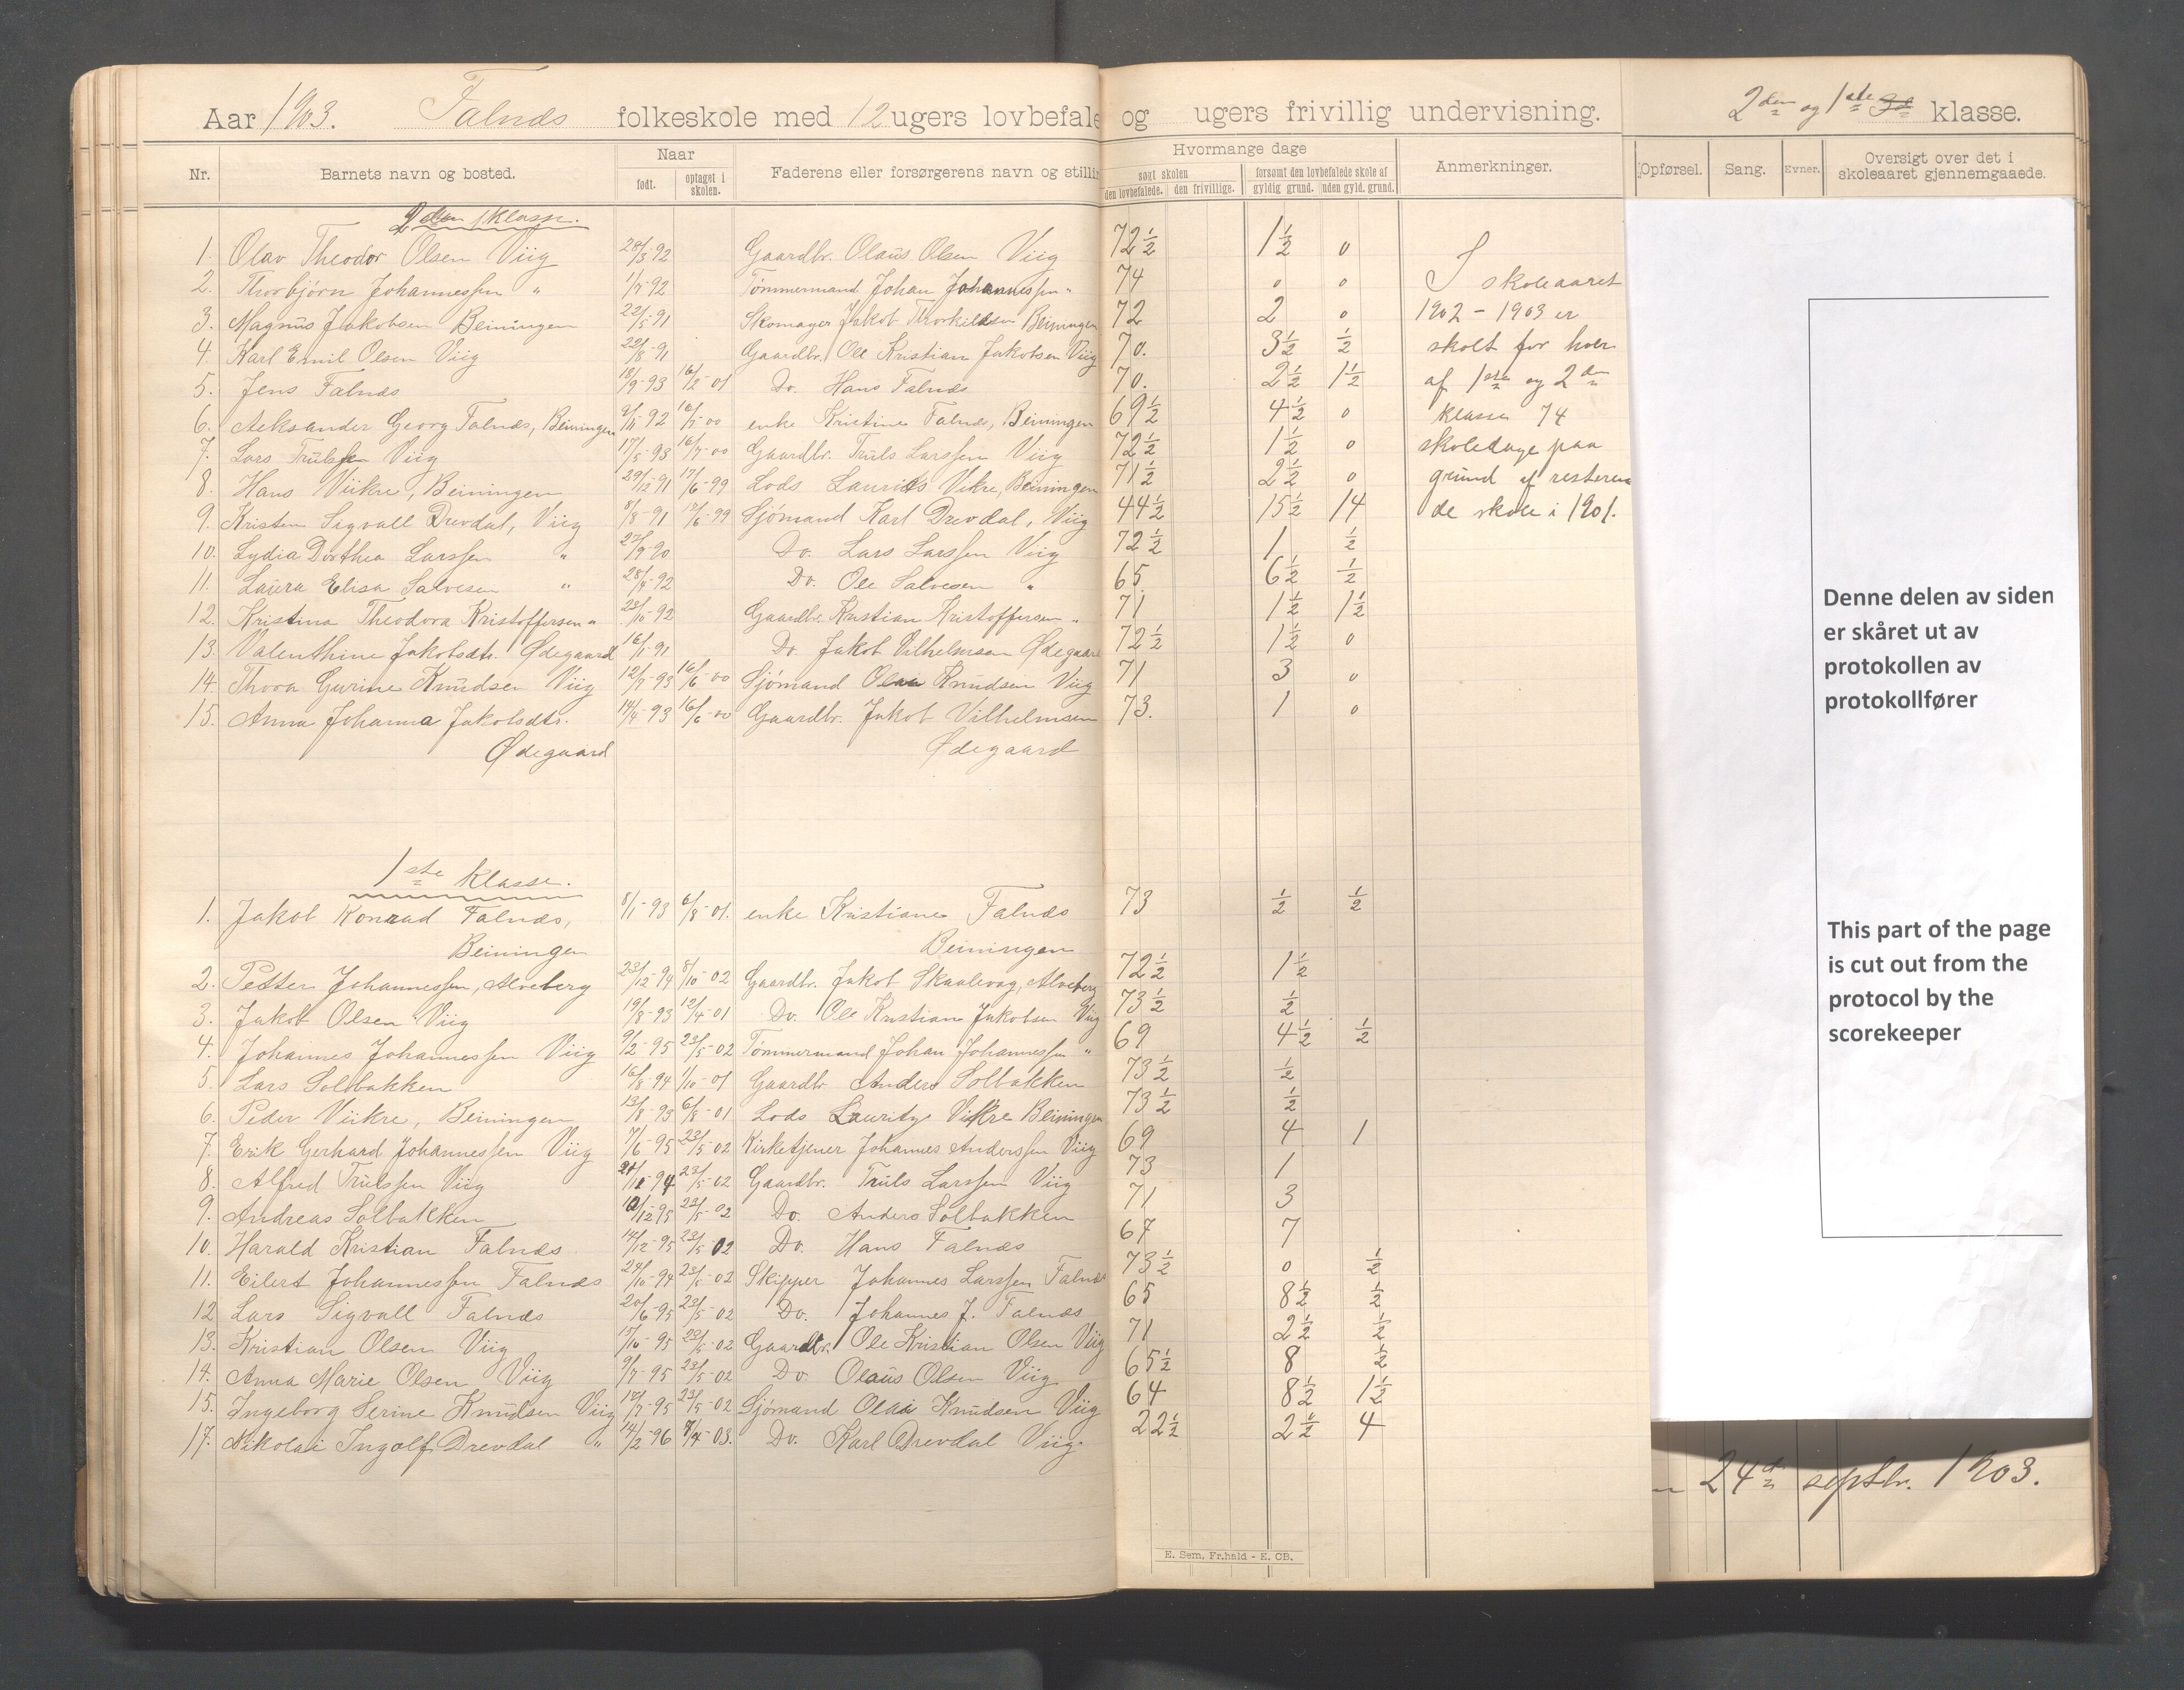 Aar 1903. Falnæs folkeskole med 12 ugers lovbefale og ugers frivillig undervisning. 2den og 1ste klasse.
Nr. Barnets navn og bosted. Naar født. optaget i skolen. Faderens eller forsørgerens navn og stillin Hvormange dage søgt skolen den lovbefalede. den frivillige. forsømt den lovbefalede skole af gyldig grund. uden gyld. grund. Anmerkninger. Opførsel. Sang. Evner. Oversigt over det i skoleaaret gjennemgaaede.
2den klasse.
1. Olav Theodor Olsen Viig 28/3-92 Gaardbr. Olaus Olsen Viig 72½ 1½ 0
2. Thorbjørn Johannessen " 1/7-92 Tømmermand Johan Johannessen " 74 0 0 I skoleaaret
3. Magnus Jakobsen Beiningen 22/5-91 Skomager Jakob Thorkildsen Beiningen 72 2 0 1902 - 1903 er
4. Karl Emil Olsen Viig 22/8-91 Gaardbr. Ole Kristian Jakobsen Viig 70. 3½ ½ skolt for hver
5. Jens Falnæs 18/9-93 16/2-01 Do. Hans Falnæs 70. 2½ 1½ af 1ste og 2den
6. Aeksander Georg Falnæs, Beiningen 9/11-92 16/7-00 enke Kristine Falnæs, Beiningen 69½ 4½ 0 klasse 74
7. Lars Trulssen Viig 17/5-93 16/7-00 Gaardbr. Truls Larssen Viig 72½ 1½ 0 skoledage paa
8. Hans Viikre, Beiningen 29/12-91 17/6-99 Lods Laurits Vikre, Beiningen 71½ 2½ 0 grund af resteren
9. Kristen Sigvall Drevdal, Viig 8/8-91 17/6-99 Sjømand Karl Drevdal, Viig 44½ 15½ 14 de skole i 1901.
10. Lydia Dorthea Larssen " 27/9-90 Do. Lars Larssen Viig 72½ 1 ½
11. Laura Elisa Salvesen " 28/4-92 Do. Ole Salvesen " 65 6½ ½
12. Kristina Theodora Kristoffersen " 23/10-92 Gaardbr. Kristian Kristoffersen " 71 1½ 1½
13. Valenthine Jakobsdtr. Ødegaard 16/1-91 Do. Jakob Vilhelmsen Ødegaard 72½ 1½ 0
14. Thora Gurine Knudsen Viig 12/7-93 16/6-00 Sjømand Olai Knudsen Viig 71 3 0
15. Anna Johanna Jakobsdtr. 14/4-93 16/6-00 Gaardbr. Jakob Vilhelmsen 73. 1 0
Ødegaard Ødegaard
1ste klasse.
1. Jakob Konrad Falnæs, 8/1-93 6/8-01. enke Kristiane Falnæs 73 ½ ½
Beiningen Beiningen
2. Petter Johannessen, Alveberg 23/12-94 8/10-02 Gaardbr. Jakob Skaalevag, Alveberg 72½ 1½
3. Jakob Olsen Viig 19/8-93 12/4-01 Do. Ole Kristian Jakobsen Viig 73½ ½
4. Johannes Johannessen Viig 9/2-95 23/5-02 Tømmermand Johan Johannessen " 69 4½ ½
5. Lars Solbakken 16/8-94 1/10-01 Gaardbr Anders Solbakken 73½ ½
6. Peder Viikre, Beiningen 13/8-93 6/8-01 Lods Lauritz Vikre Beiningen 73½ ½
7. Erik Gerhard Johannessen Viig 7/6-95 23/5-02 Kirketjener Johannes Anderssen Viig 69 4 1
8. Alfred Trulssen Viig 94 23/5-02 Gaardbr. Truls Larssen Viig 73 1
9. Andreas Solbakken 12-95 23/5-02 Do. Anders Solbakken 71 3
10. Harald Kristian Falnæs 14/12-95 23/5 02 Do. Hans Falnæs 67 7
11. Eilert Johannessen Falnæs 24/10-94 23/5-02 Skipper Johannes Larssen Falnæs 73½ 0 ½
12 Lars Sigvall Falnæs 20/6-95 23/5-02 Do. Johannes J. Falnæs 65 8½ ½
13. Kristian Olsen Viig 15/10-95 23/5-02 Gaardbr. Ole Kristian Olsen Viig 71 2½ ½
14. Anna Marie Olsen Viig 9/7-95 23/5-02 Do. Olaus Olsen Viig 65½ 8 ½
15. Ingeborg Serine Knudsen Viig 17/7-95 23/5-02 Sjømand Olai Knudsen Viig 64 8½ 1½
17. Nikolai Ingolf Drevdal " 14/2-96 7/4-03. Do. Karl Drevdal Viig 22½ 2½ 4
24de septbr. 1903.
E. Sem, Fr.hald - E. CB.
Denne delen av siden
er skåret ut av
protokollen av
protokollfører
This part of the page
is cut out from the
protocol by the
scorekeeper